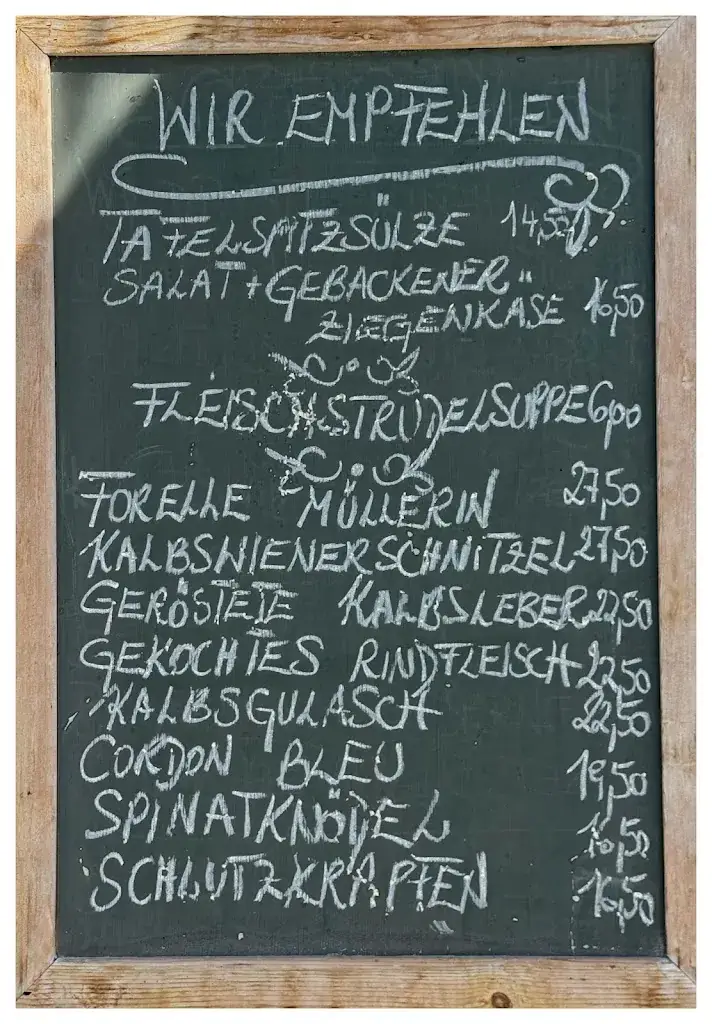 WIR EMPFEHLEN
TAFELSPITZSÜLZE 14,50
SALAT + GEBACKENER
ZIEGENKÄSE 16,50
FLEISCHSTRUDELSUPPE 6,00
FORELLE MÜLLERIN 27,50
KALBSWIENERSCHNITZEL 27,50
GERÖSTETE KALBSLEBER 22,50
GEKOCHTES RINDFLEISCH 22,50
KALBSGULASCH 22,50
CORDON BLEU 19,50
SPINATKNÖDEL 16,50
SCHLUTZKRAPFEN 16,50